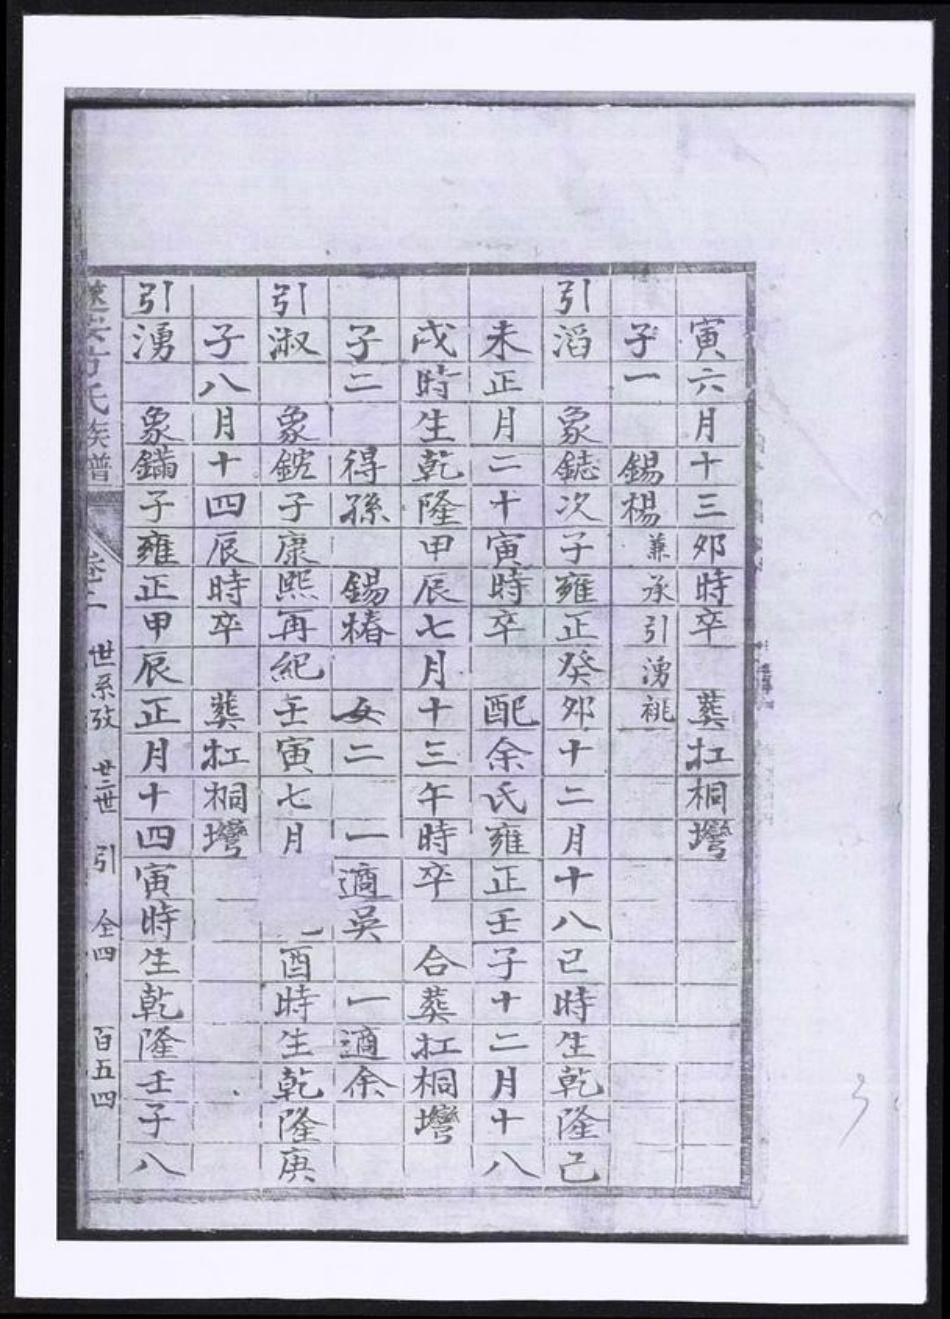 寅六月十三夘時卒 葬扛桐灣
子一 錫楊 兼承引湧祧
引滔 象鋕次子雍正癸夘十二月十八己時生乾隆己
未正月二十寅時卒 配余氏雍正壬子十二月十八
戌時生乾隆甲辰七月十三午時卒 合葬扛桐灣
子二 得孫 錫椿 女二 一適吳 一適余
引淑 象鋐子康熙再紀壬寅七月 酉時生乾隆庚
子八月十四辰時卒 葬扛桐灣
引湧 象鏋子雍正甲辰正月十四寅時生乾隆壬子八
方氏族譜 卷二 世系攷 廿二世 引 仝四 百五四